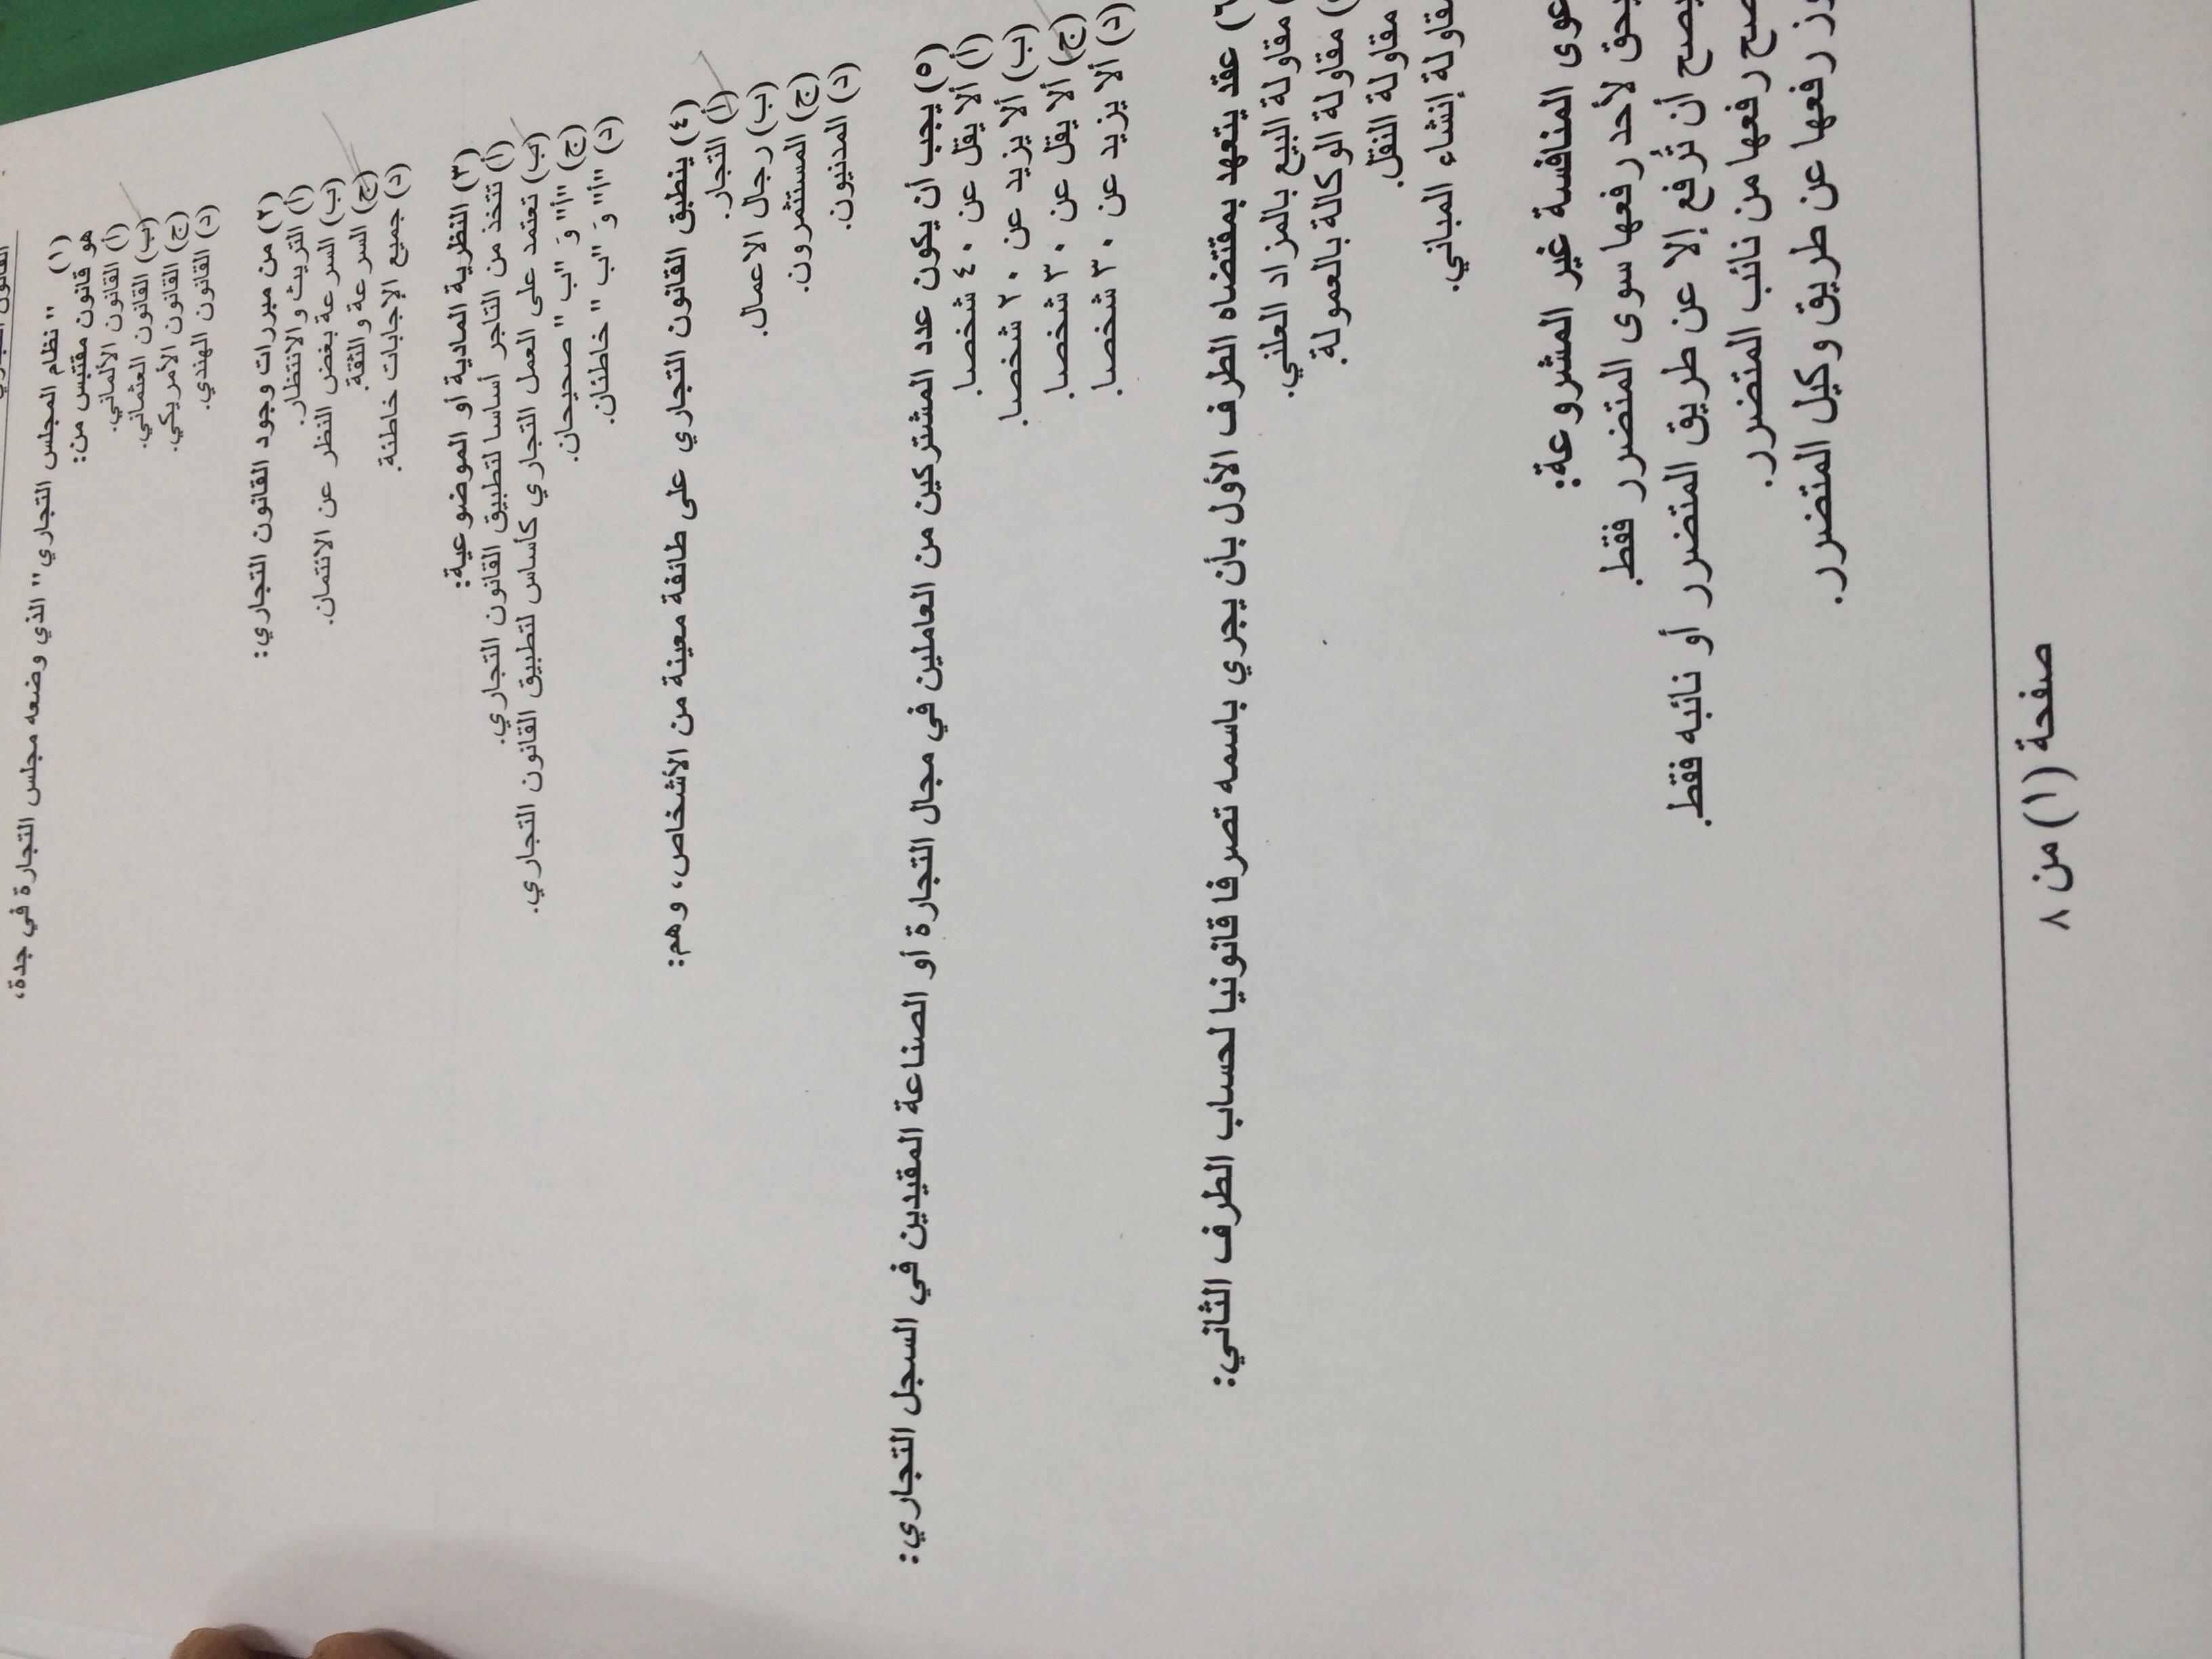 (١) " نظام المجلس التجاري" الذي وضعه مجلس التجارة في جدة،
هو قانون مقتبس من:
(أ) القانون الألماني.
(ب) القانون العثماني.
(ج) القانون الأمريكي.
(د) القانون الهندي.
(٢) من مبررات وجود القانون التجاري:
(أ) التريث والانتظار.
(ب) السرعة بغض النظر عن الائتمان.
(ج) السرعة والثقة.
(د) جميع الإجابات خاطئة.
(٣) النظرية المادية أو الموضوعية:
(أ) تتخذ من التاجر أساسا لتطبيق القانون التجاري.
(ب) تعتمد على العمل التجاري كأساس لتطبيق القانون التجاري.
(ج) "أ" وَ "ب" صحيحان.
(د) "أ" وَ "ب " خاطئان.
(٤) ينطبق القانون التجاري على طائفة معينة من الأشخاص، وهم:
(أ) التجار.
(ب) رجال الاعمال.
(ج) المستثمرون.
(د) المدنيون.
(٥) يجب أن يكون عدد المشتركين من العاملين في مجال التجارة أو الصناعة المقيدين في السجل التجاري:
(أ) ألا يقل عن ٤٠ شخصا.
(ب) ألا يزيد عن ٢٠ شخصا.
(ج) ألا يقل عن ٣٠ شخصا.
(د) ألا يزيد عن ٣٠ شخصا.
(٦) عقد يتعهد بمقتضاه الطرف الأول بأن يجري باسمه تصرفا قانونيا لحساب الطرف الثاني:
مقاولة البيع بالمزاد العلني.
مقاولة الوكالة بالعمولة.
مقاولة النقل.
مقاولة إنشاء المباني.
المنافسة غير المشروعة:
لأحد رفعها سوى المتضرر فقط.
أن تُرفع إلا عن طريق المتضرر أو نائبه فقط.
رفعها من نائب المتضرر.
رفعها عن طريق وكيل المتضرر.
صفحة (١) من ٨